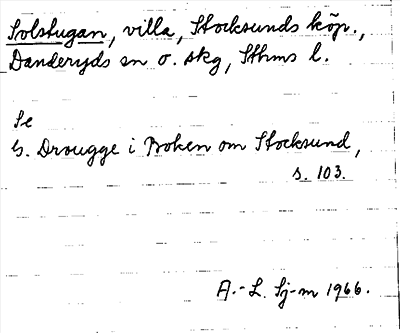 Solstugan, villa, Stocksunds köp.,
Danderyds sn o. skg, Sthms l.
Se
G. Drougge i Boken om Stocksund,
s. 103.
A.-L. Sj-m 1966.